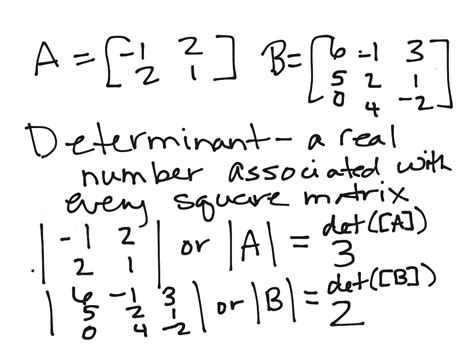 A = [-1 2 B = [6 -1 3
2 1] 5 2 1
0 4 -2]
Determinant - a real
number associated with
every square matrix
|-1 2
2 1| or |A| = det([A])
3
|6 -1 3
5 2 1
0 4 -2| or |B| = det([B])
2